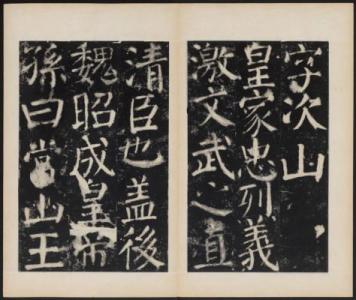 字次山
皇家忠烈義
激文武之直
清臣也盖後
魏昭成皇帝
孫曰常山王